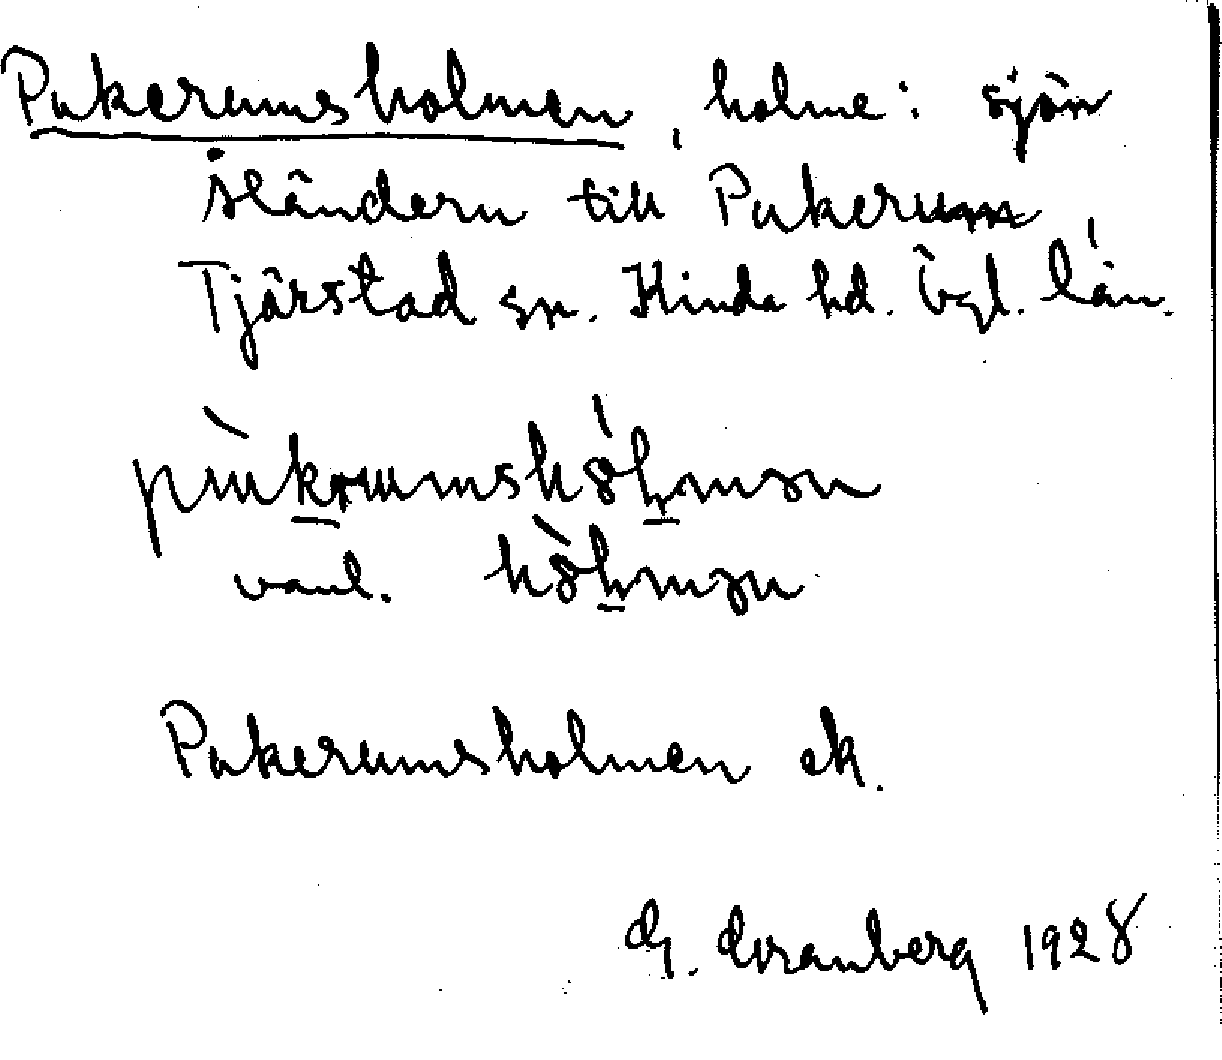 Pukerumsholmen, holme i sjön
Åländern till Pukerum,
Tjärstad sn. Kinda hd. Ögl. län.
vanl.
Pukerumsholmen ek.
G. Granberg 1928